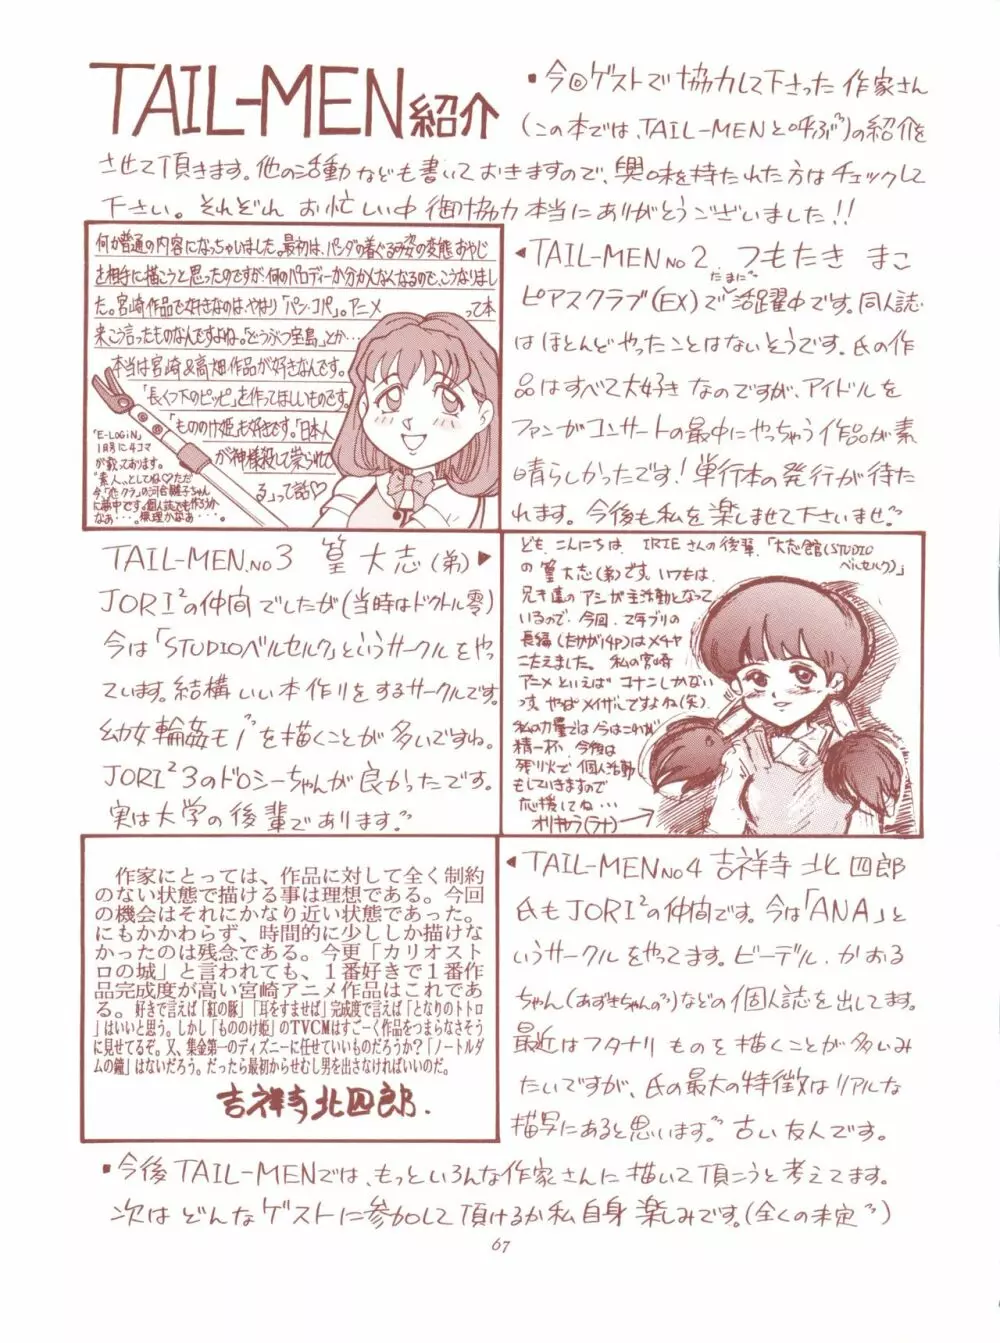 TAIL-MEN紹介
・今回ゲストで協力して下さった作家さん
(この本では、TAIL-MENと呼ぶ)の紹介を
させて頂きます。他の活動なども書いておきますので、興味を持たれた方はチェックして
下さい。それぞれ お忙しい中 御協力本当にありがとうございました!!
何か普通の内容になっちゃいました。最初は、パンダの着ぐるみ姿の変態おやじ
を相手に描こうと思ったのですが、何のパロディーか分かんなくなるので、こうなりまし
た。宮崎作品で好きなのは、やはり「パン・コパ」。アニメ って本
来こう言ったものなんですよね。「どうぶつ宝島」とか…
本当は宮崎&高畑作品が好きなんです。
「長くつ下のピッピ」を作ってほしいものです。
「もののけ姫」も好きです。「日本人
が神様殺して祟られて
る」って話♡
「E-LOGiN」
1月号に4コマ
が載っております。
"素人"としてね♡ただ
今「恋クラ」の河合雛子ちゃん
に夢中です。個人誌でも作ろうか
なぁ…。無理かなぁ…。
◀TAIL-MEN No 2. つもたき まこ
ピアスクラブ(EX)で たまに 活躍中です。同人誌
はほとんどやったことはないそうです。氏の作
品はすべて大好きなのですが、アイドルを
ファンがコンサートの最中にやっちゃう作品が素
晴らしかったです!単行本の発行が待た
れます。今後も私を楽しませて下さいませ。
TAIL-MEN. No 3 篁 大志(弟)▶
JORI²の仲間でしたが(当時はドクトル零)
今は「STUDIOベルセルク」というサークルをやっ
ています。結構いい本作りをするサークルです。
実は大学の後輩であります。
ども、こんにちは、IRIEさんの後輩、「大志館(STUDIO
ベルセルク)」
の篁大志(弟)です。いつもは、
兄き達のアシが主活動となって
いるので、今回、2年ブリの
長編(たかが14P)はメチャ
こたえました。私の宮崎
アニメといえば コナンしかない
っす。やっぱメイザしですよね(笑)
私の力量では今はこれが
精一杯、今後は
残り火で個人活動
もしていきますので
応援してね…
オリキャラ(ラナ)→
作家にとっては、作品に対して全く制約
のない状態で描ける事は理想である。今回
の機会はそれにかなり近い状態であった。
にもかかわらず、時間的に少ししか描けな
かったのは残念である。今更「カリオスト
ロの城」と言われても、1番好きで1番作
品完成度が高い宮崎アニメ作品はこれであ
る。好きで言えば「紅の豚」「耳をすませば」完成度で言えば「となりのトトロ
」はいいと思う。しかし「もののけ姫」のTVCMはすごーく作品をつまらなさそう
に見せてるぞ。又、集金第一のディズニーに任せていいものだろうか?「ノートルダ
ムの鐘」はないだろう。だったら最初からせむし男を出さなければいいのだ。
吉祥寺北四郎.
◀TAIL-MEN No 4 吉祥寺 北四郎
氏もJORI²の仲間です。今は「ANA」と
いうサークルをやってます。ビーデル、かおる
ちゃん(あずきちゃんの)などの個人誌を出してます。
最近はフタナリものを描くことが多いみ
たいですが、氏の最大の特徴はリアルな
描写にあると思います。古い友人です。
・今後TAIL-MENでは、もっといろんな作家さんに描いて頂こうと考えてます。
次はどんなゲストに参加して頂けるか私自身楽しみです。(全くの未定)
67